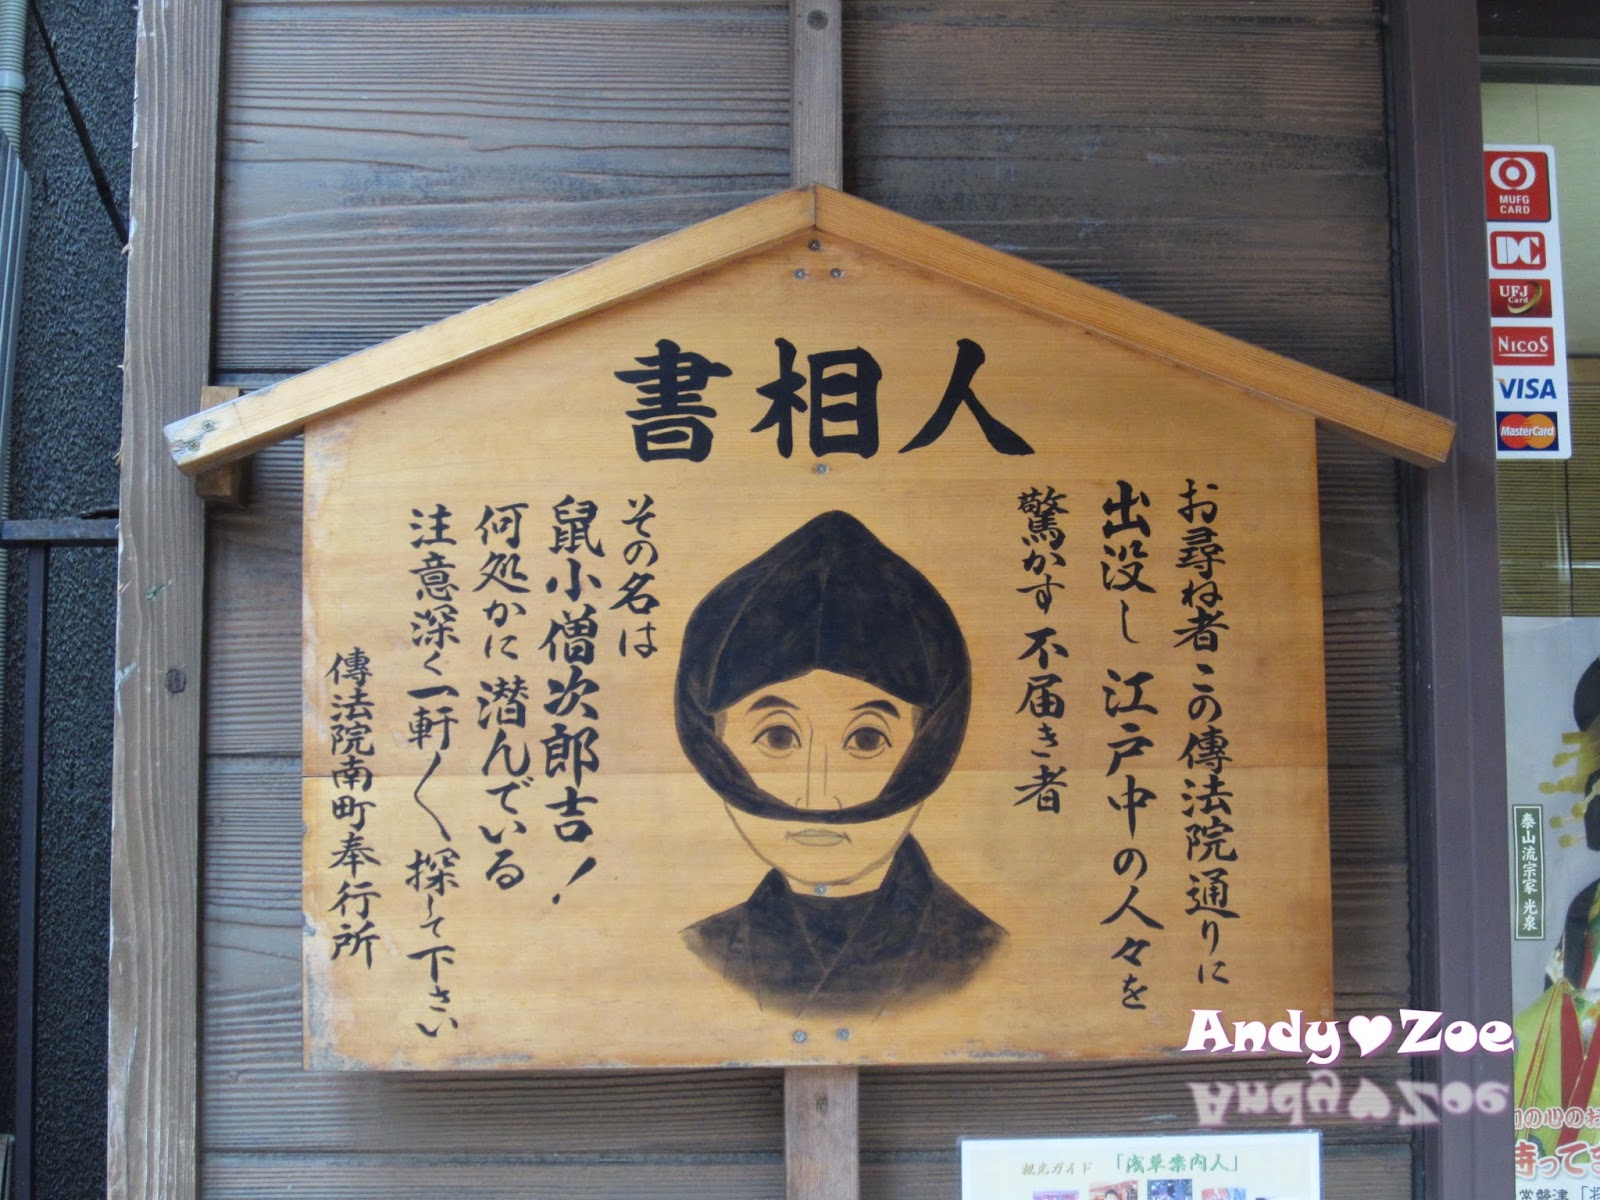 人相書
お尋ね者この傳法院通りに
出没し江戸中の人々を
驚かす不届き者
その名は
鼠小僧次郎吉!
何処かに潜んでいる
注意深く一軒〱探して下さい
傳法院南町奉行所
MUFG
CARD
DC
UFJ
Card
NICOS
VISA
MasterCard
泰山流宗家 光泉
Andy♥Zoe
観光ガイド 「浅草案内人」